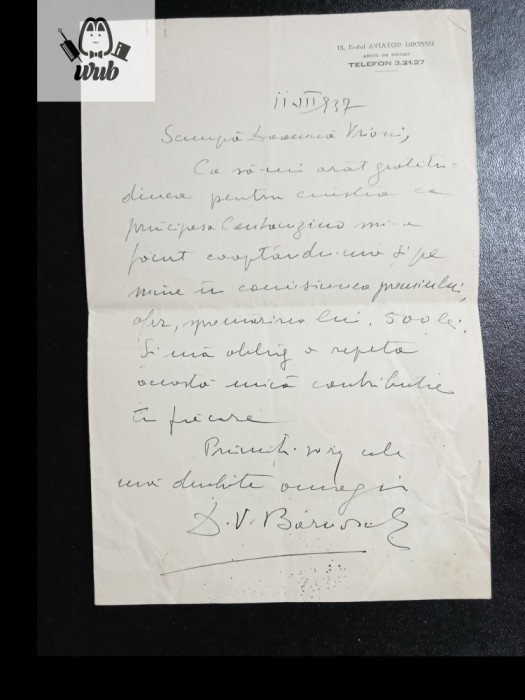 wub
15, B-dul AVIATOR DROSSU
TELEFON 3.21.27
11 III 937
Scumpă Doamnă Vrioni,
Ca să-mi arăt gratitu-
dinea pentru cinstea ce
principesa Cantacuzino mi-a
făcut cooptându-mă și pe
mine în comisiunea premiului,
ofer, spre mărirea lui, 500 lei.
Și mă oblig a repeta
această mică contribuție
în fiecare
Primiți, vă rog, cele
mai deosebite omagii
D. V. Barnoschi